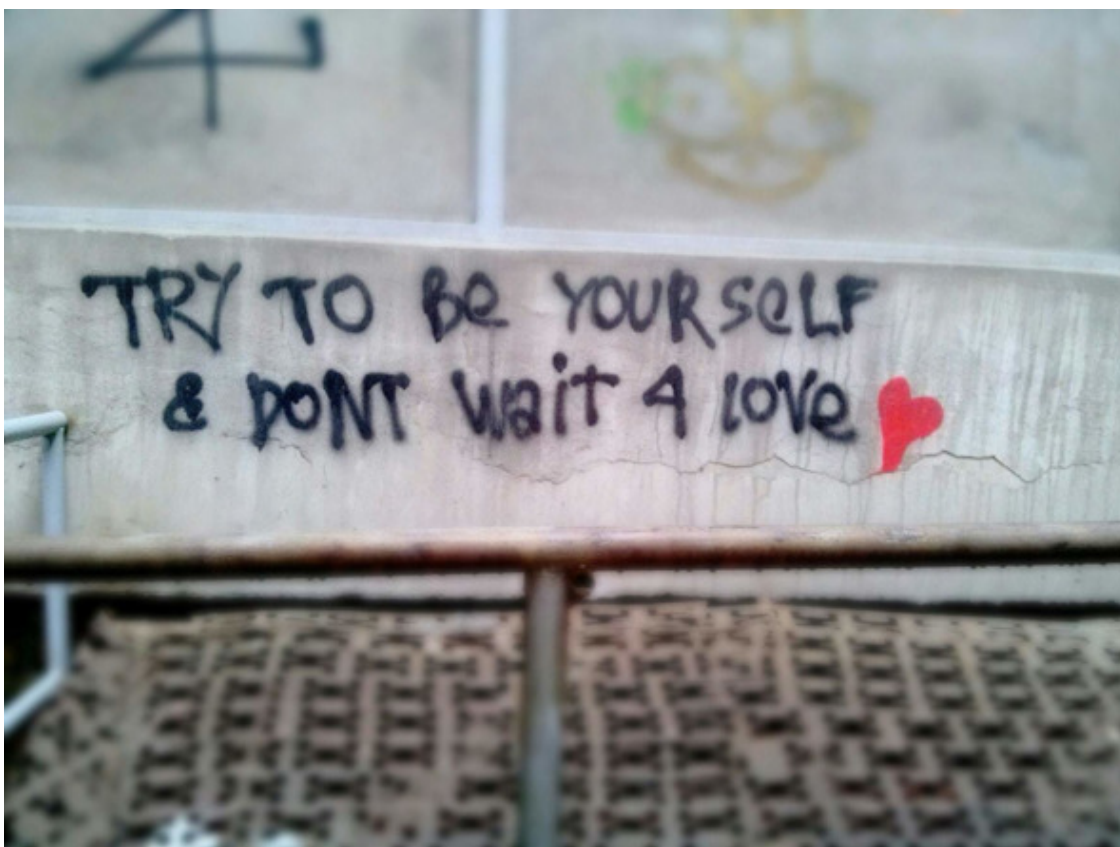 TRY TO Be YOURSeLF
& DONT wait 4 love